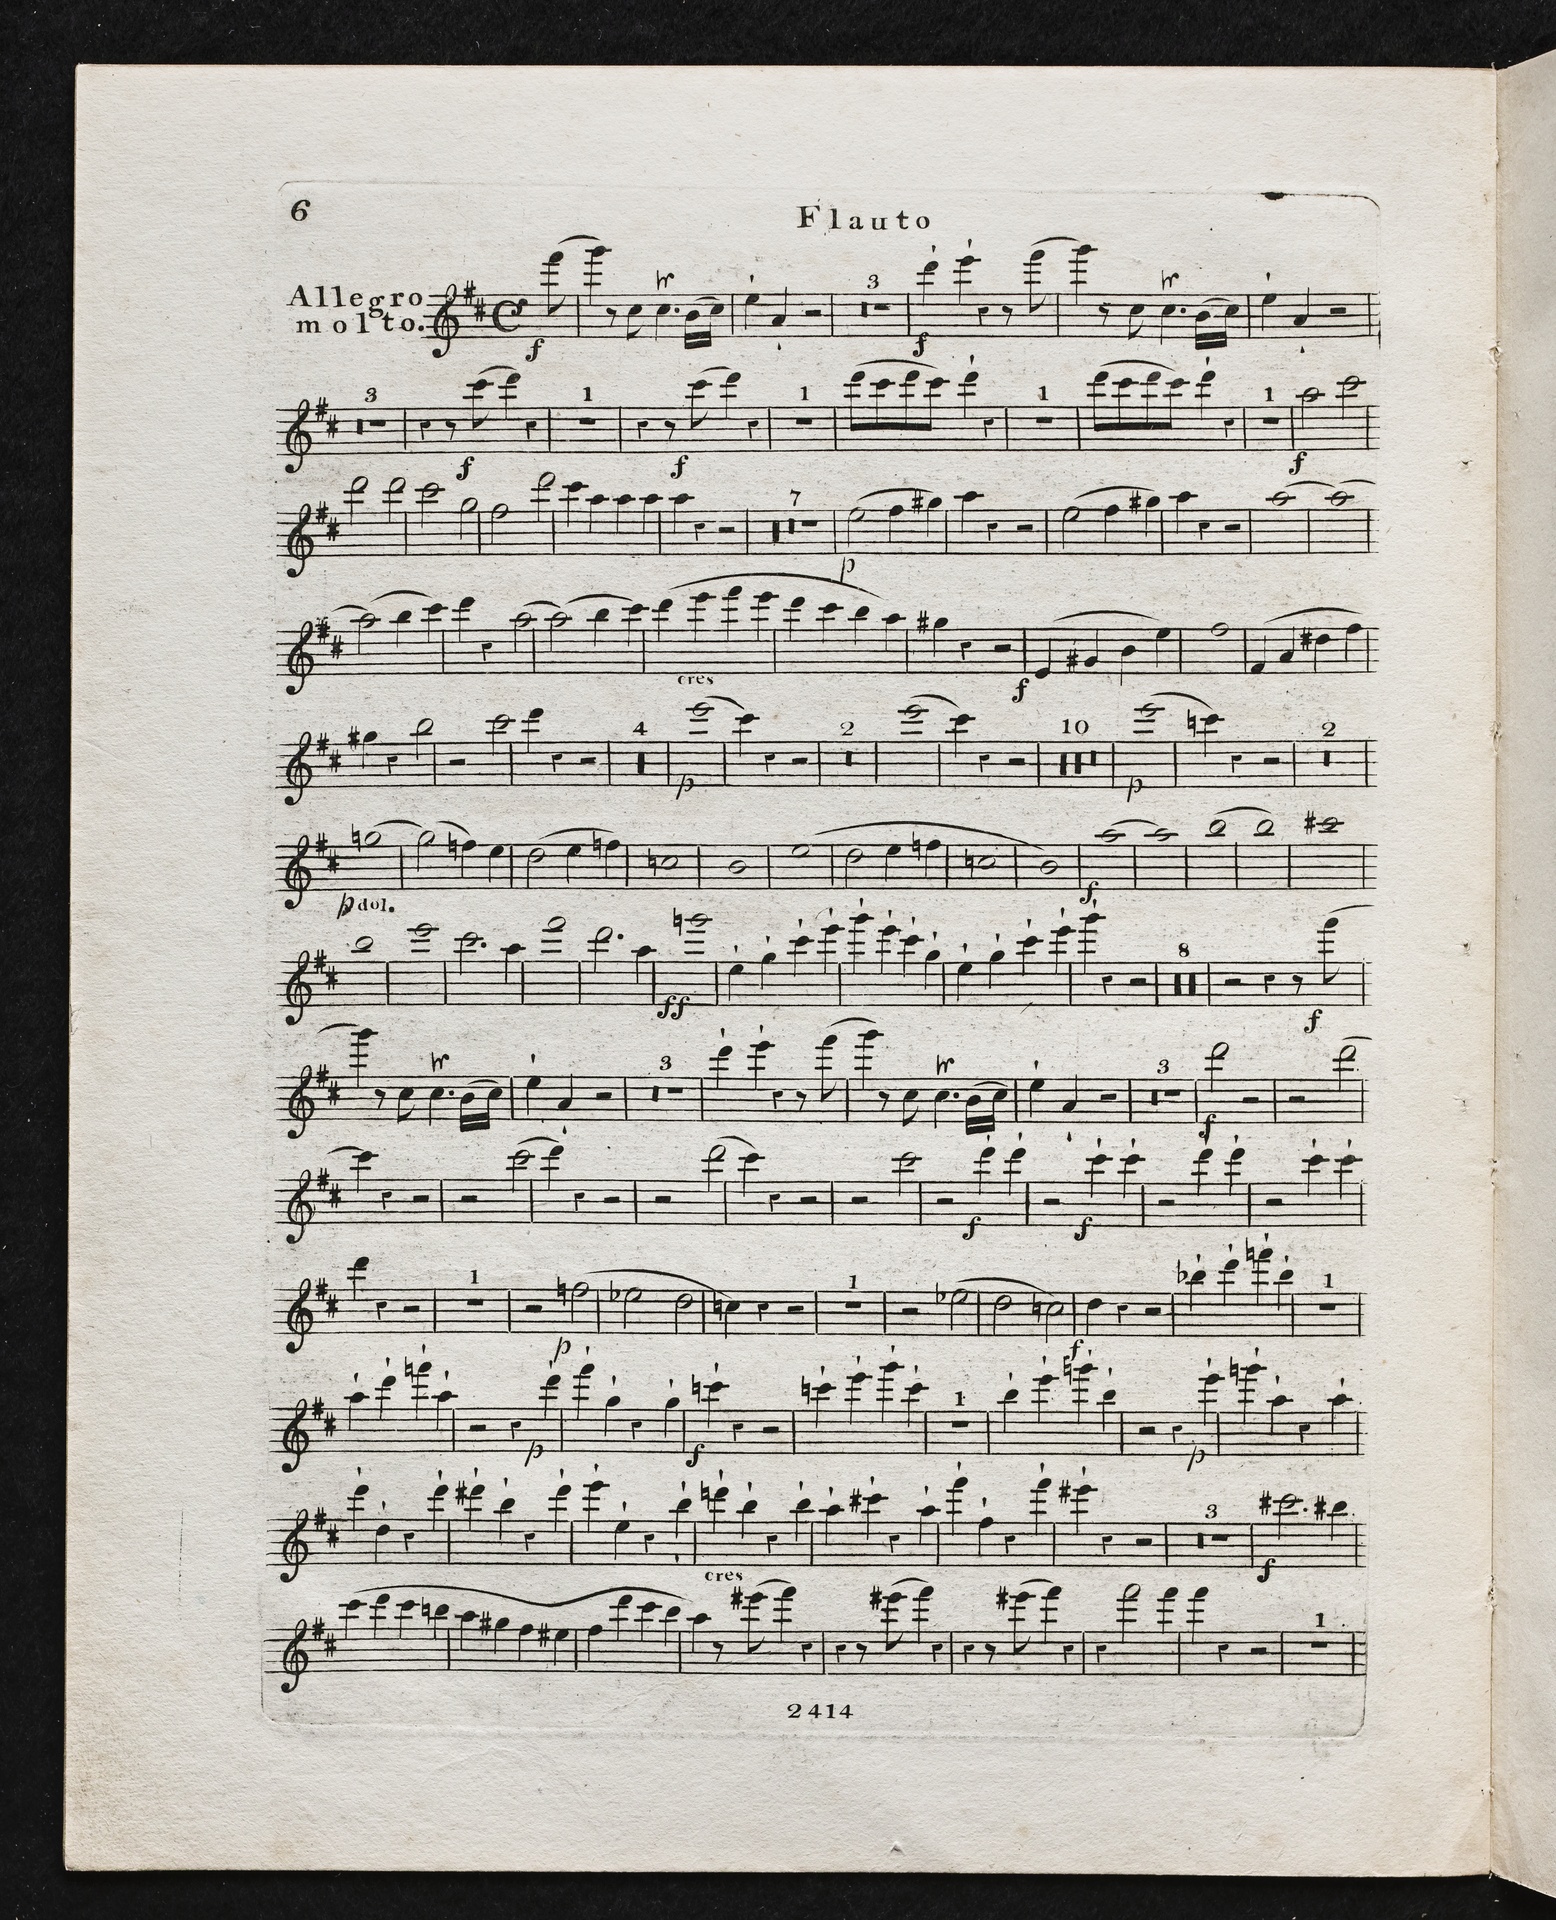 6
Flauto
Allegro
molto.
tr
tr
3
f
f
3
1
1
1
1
f
f
f
7
p
cres
f
4
2
10
2
p
p
p dol.
f
8
ff
f
tr
tr
3
3
f
f
f
1
1
1
p
f
1
p
f
p
3
cres
f
1
2414